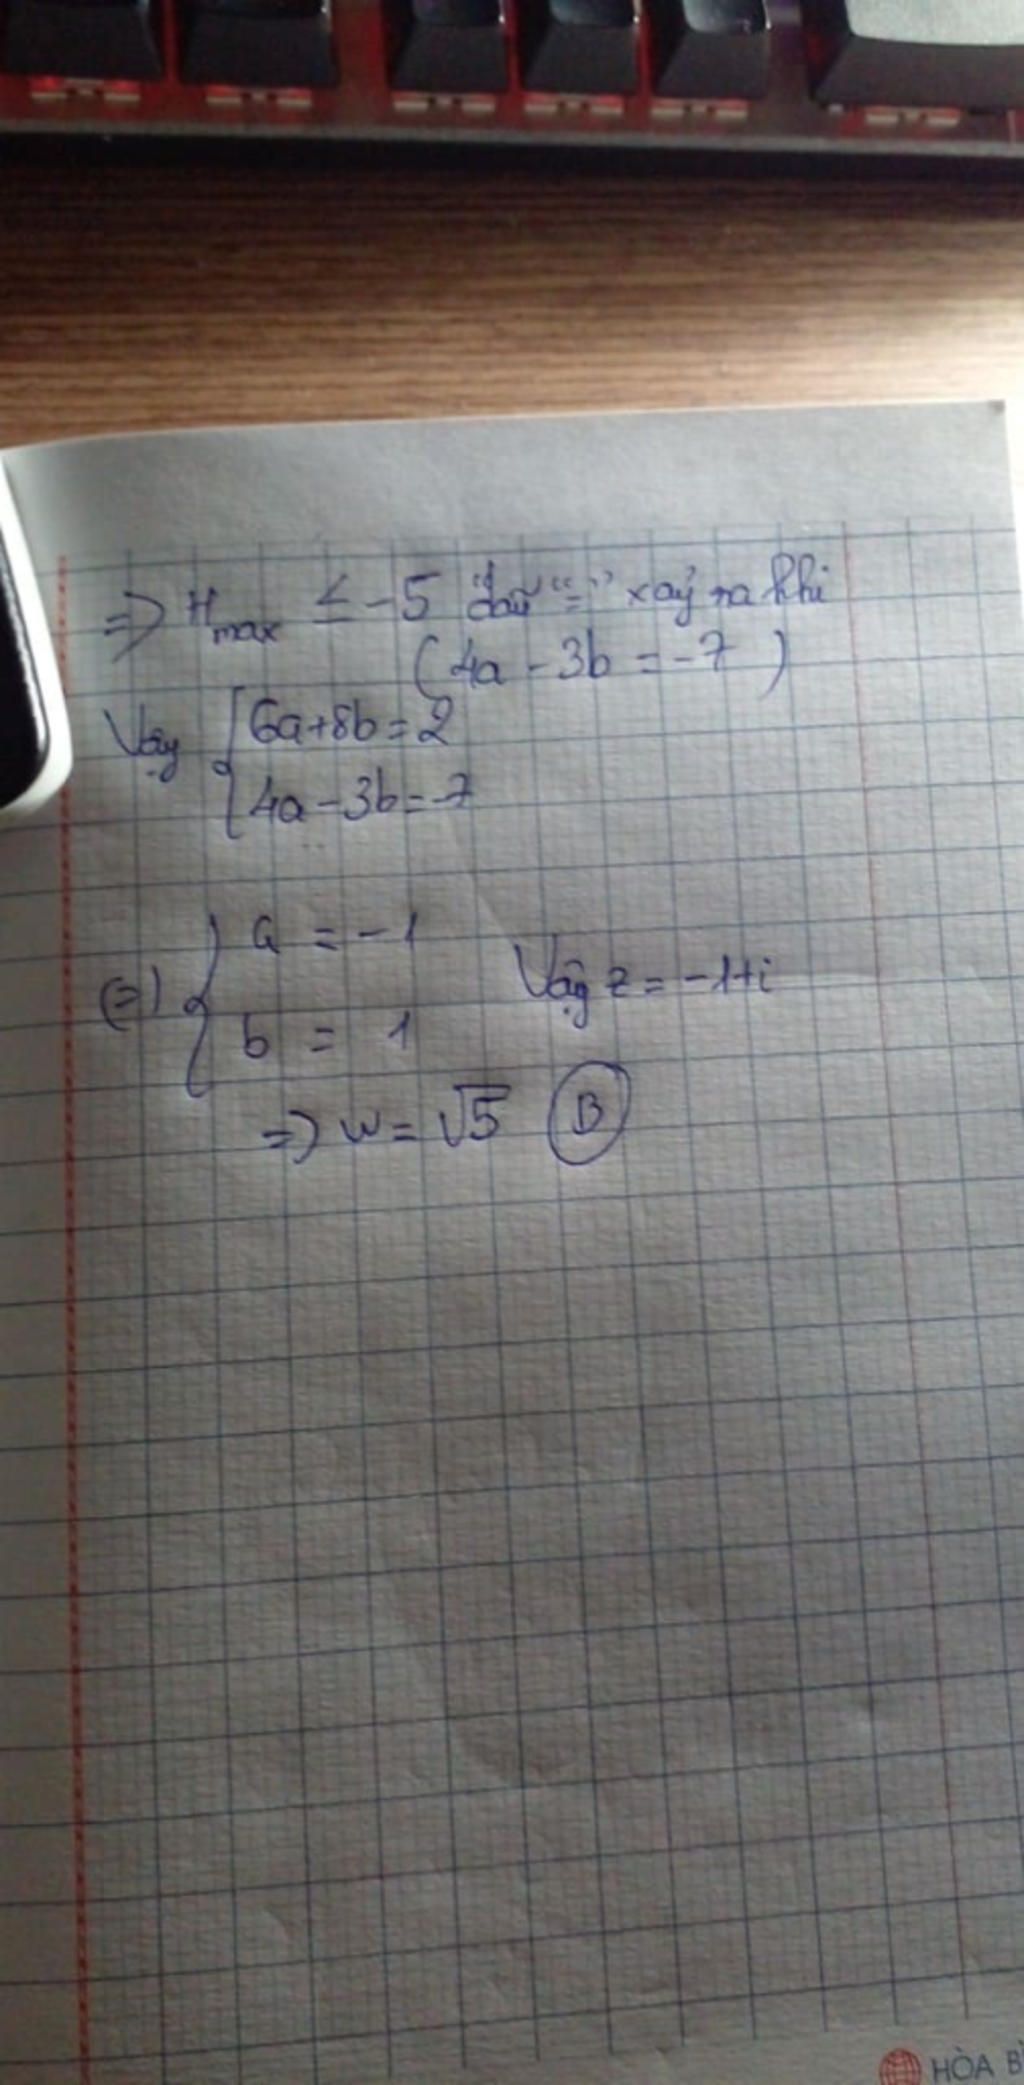 => Hmax ≤ -5 dấu "=" xảy ra khi
(4a - 3b = -7)
Vậy { 6a+8b=2
4a-3b=-7
(=) { a = -1
b = 1
Vậy z = -1+i
=> w = √5 (B)
HÒA B